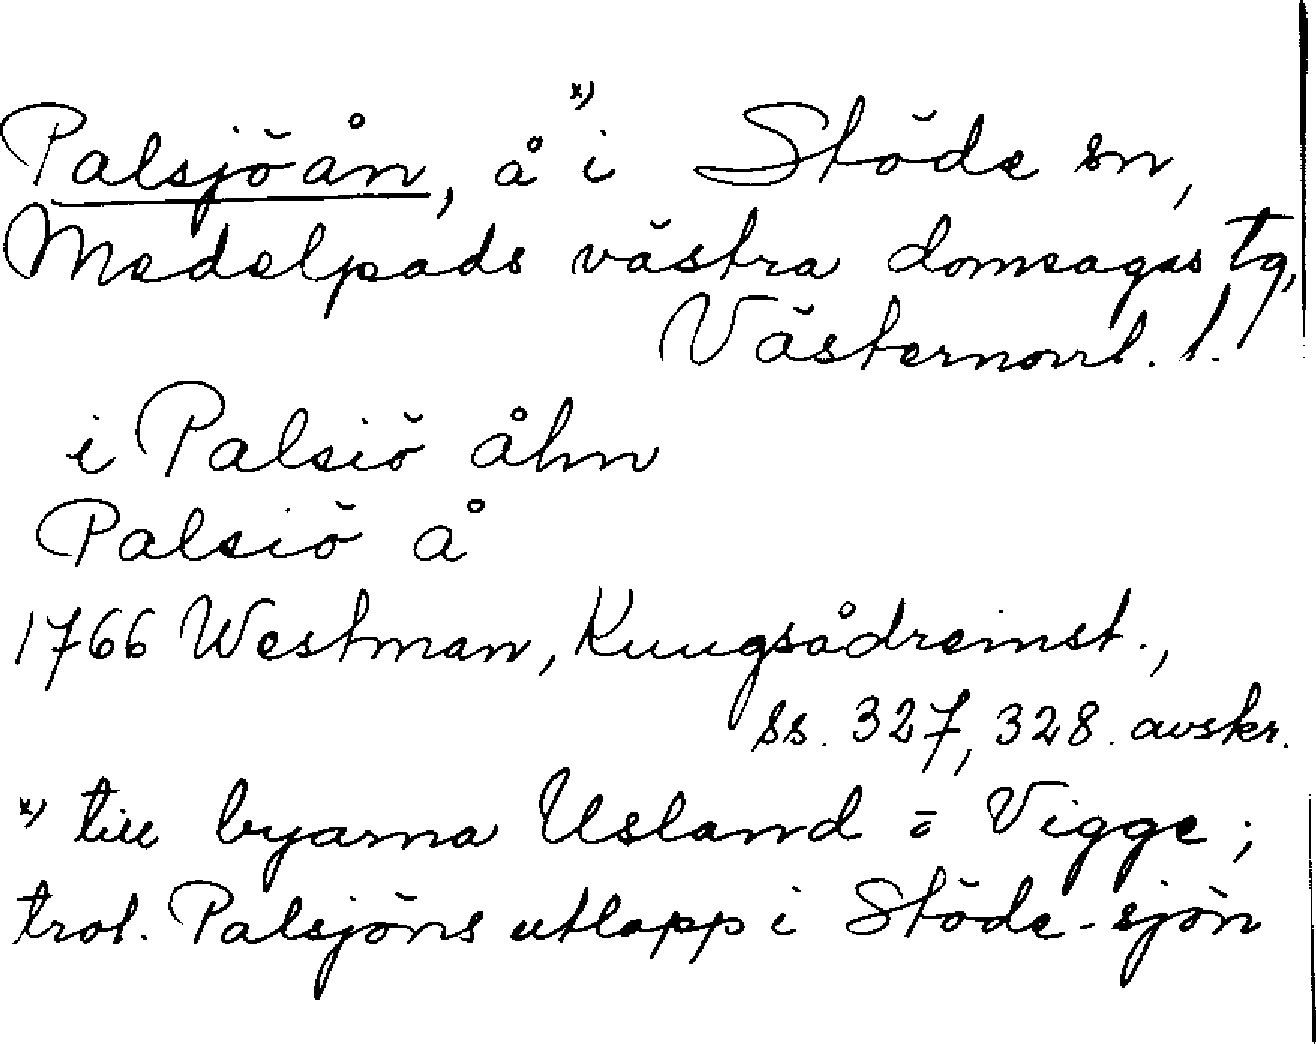 Palsjöån, å x) i Stöde sn,
Medelpads västra domsagas tg,
Västernorrl. l.
i Palsiö åhn
Palsiö å
1766 Westman, Kungsådreinst.,
ss. 327, 328. avskr.
x) till byarna Usland o Vigge;
trol. Palsjöns utlopp i Stöde-sjön